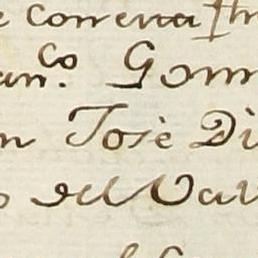 e Correra
an.co Gom
n Josè Di
o del Val